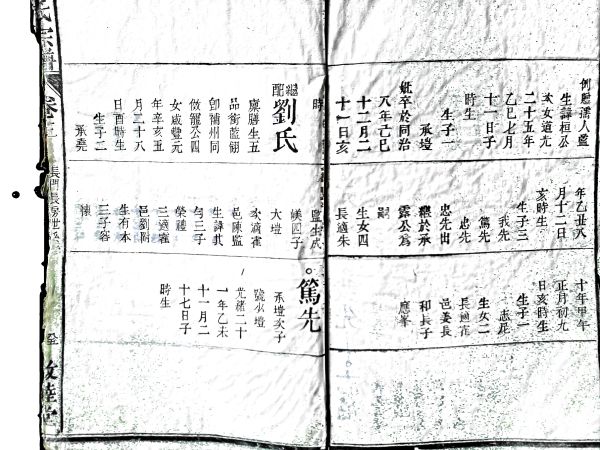 生諱桓公
女道光
二十五年
乙巳七月
十一日子
時生
生子一
承塏
歿卒於同治
八年己巳
十二月二
十一日亥
時
繼配
劉氏
廩膳生五
品銜藍翎
卽補州同
倣寵公四
女咸豐元
年辛亥五
月二十八
日酉時生
生子二
承堯
年乙丑八
月十二日
亥時生
生子三
我先
篤先
忠先
忠先出
繼於承
霖公為
嗣
生女四
長適朱
監生成
媄四子
大塏
次適霍
邑陳監
生諱其
勻三子
榮禮
三適寧
邑劉附
生有本
三子容
懷
十年甲午
正月初九
日亥時生
生子一
志昆
生女二
長適
邑姜長
和長子
應峯
篤先
承塏次子
號
光緒二十
一年乙未
十一月二
十七日子
時生
氏宗譜
卷
敦睦堂